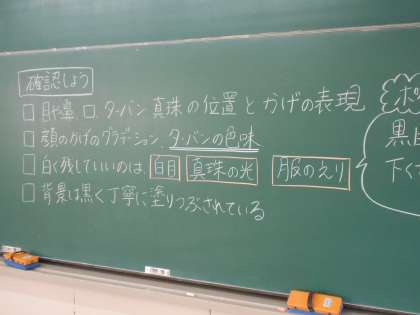 確認しよう
□ 目や鼻、口、ターバン 真珠の位置とかげの表現
□ 顔のかげのグラデーション、ターバンの色味
□ 白く残していいのは、白目 真珠の光 服のえり
□ 背景は黒く丁寧に塗りつぶされている